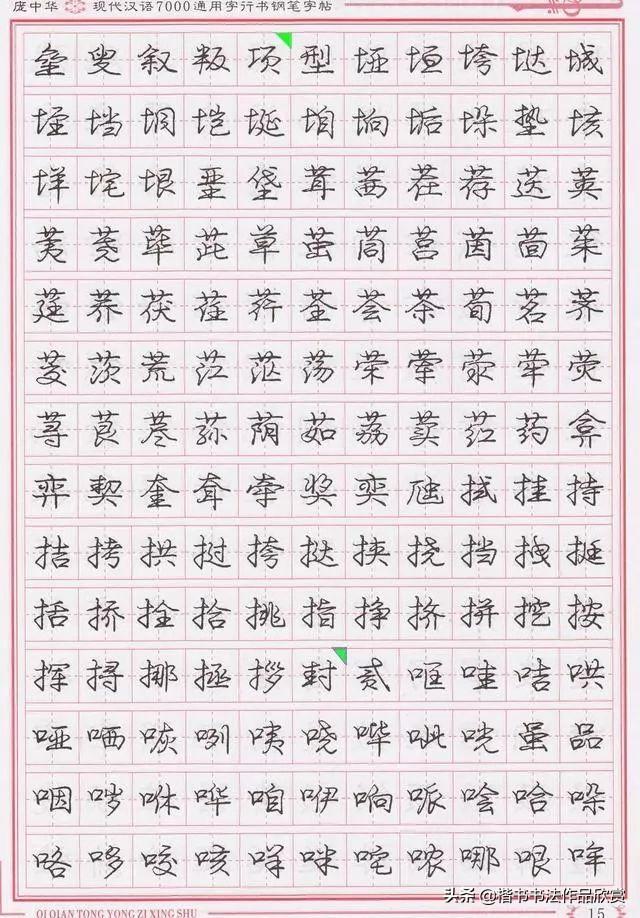 庞中华 现代汉语7000通用字行书钢笔字帖
垒 叟 叙 叛 项 型 垭 垣 垮 垯 城
垤 垱 垌 垲 埏 垍 垧 垢 垛 垫 垓
垟 垞 垠 垩 垡 茸 茜 茬 荐 荙 荚
荑 荛 荜 茈 草 茧 茼 莒 茵 茴 茱
莛 荞 茯 荏 荇 荃 荟 茶 荀 茗 荠
茭 茨 荒 茳 茫 荡 荣 荤 荥 荦 荧
荨 茛 荩 荪 荫 茹 荔 荬 荭 药 弇
弈 契 奎 耷 牵 奖 奕 虺 拭 挂 持
拮 拷 拱 挝 挎 挞 挟 挠 挡 拽 挺
括 挢 拴 拾 挑 指 挣 挤 拼 挖 按
挥 挦 挪 拯 拶 封 贰 哐 哇 咭 哄
哑 哂 咴 咧 咦 哓 哔 呲 咣 虽 品
咽 哕 咻 哗 咱 咿 响 哌 哙 哈 哚
咯 哆 咬 咳 咩 咪 咤 哝 哪 哏 哞
QI QIAN TONG YONG ZI XING SHU 15
头条 @楷书书法作品欣赏